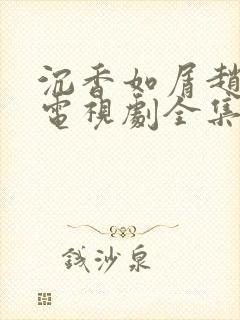 沉香如屑趙
電視劇全集
錢沙泉